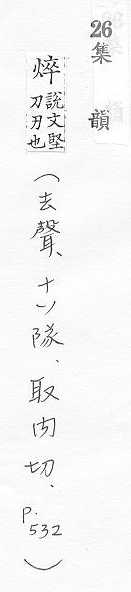 26集韻
焠 說文堅刀刃也
(去聲、十八隊、取内切、p.532)